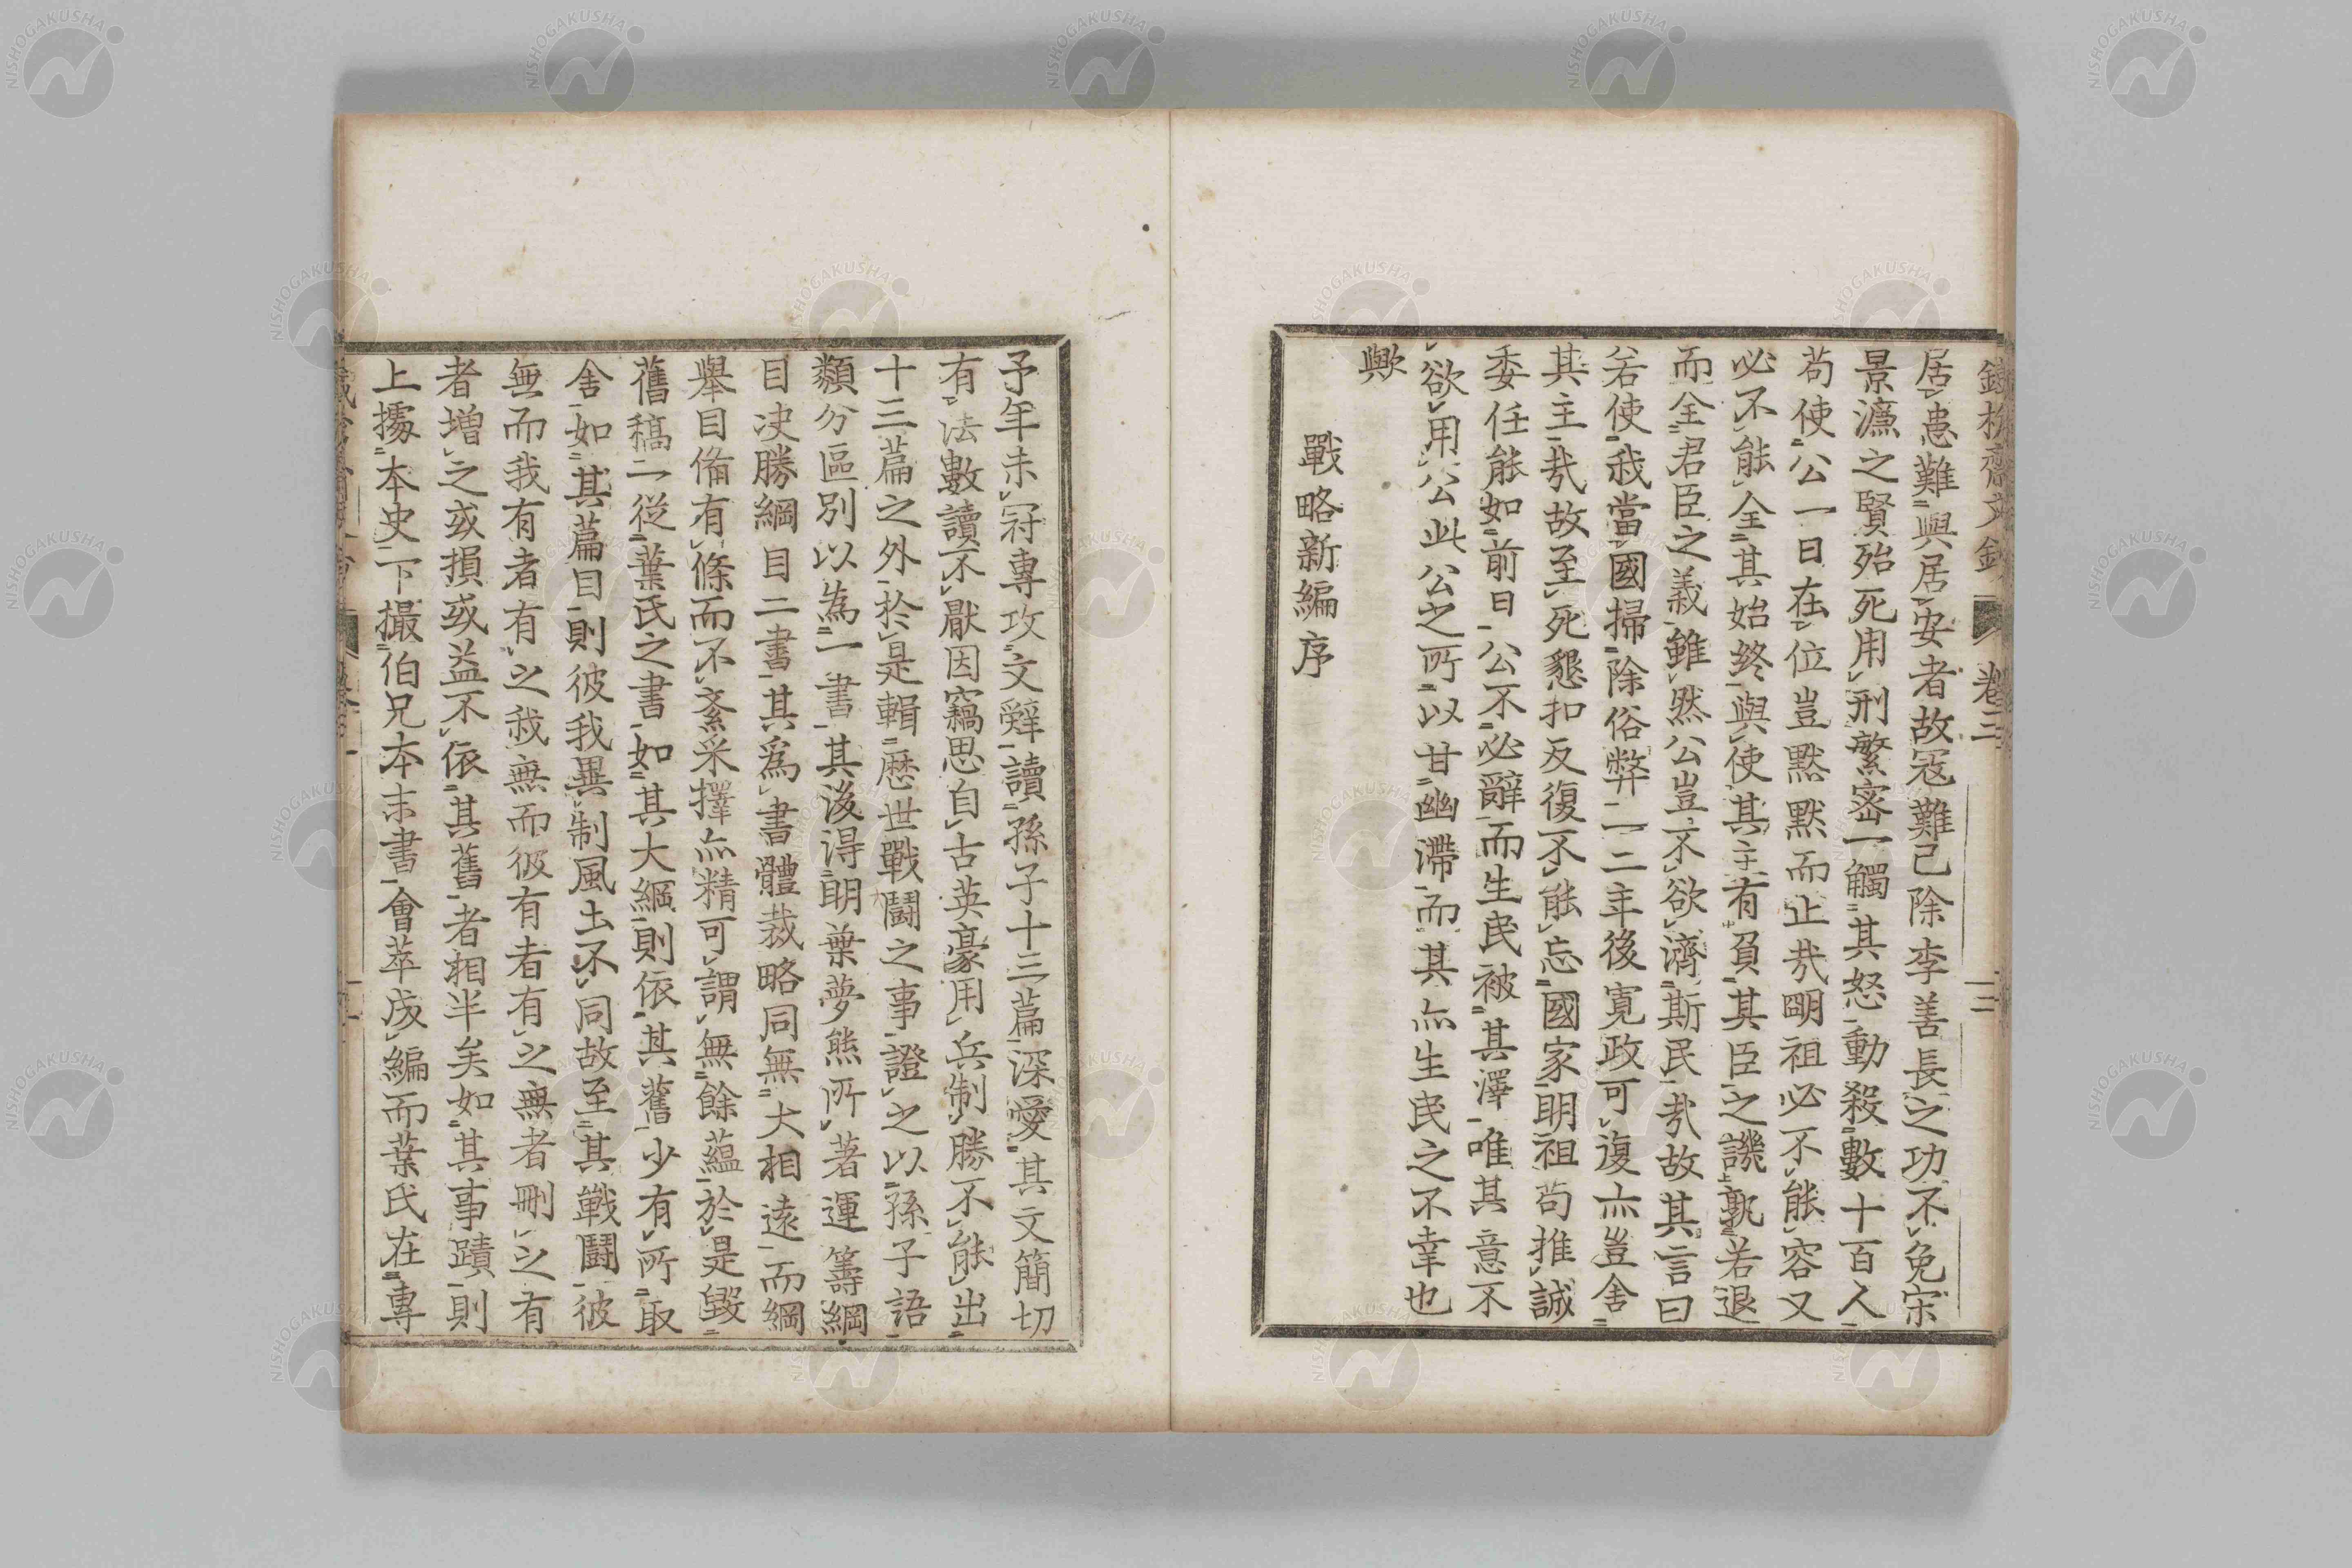 鐵槍齋文鈔 卷三 三
居患難與居安者故寇難已除李善長之功不免宋
景濂之賢殆死用刑繁密一觸其怒動殺數十百人
苟使公一日在位豈默默而止哉明祖必不能容又
必不能全其始終與使其主有負其臣之譏孰若退
而全君臣之義雖然公豈不欲濟斯民哉故其言曰
若使我當國掃除俗弊一二年後寬政可復亦豈舍
其主哉故至死懇扣反復不能忘國家明祖苟推誠
委任能如前日公不必辭而生民被其澤唯其意不
欲用公此公之所以甘幽滯而其亦生民之不幸也
歟
戰略新編序
予年未冠專攻文辭讀孫子十三篇深愛其文簡切
有法數讀不厭因竊思自古英豪用兵制勝不能出
十三篇之外於是輯歷世戰鬪之事證之以孫子語
類分區別以為一書其後得明葉夢熊所著運籌綱
目決勝綱目二書其爲書體裁略同無大相遠而綱
舉目備有條而不紊采擇亦精可謂無餘蘊於是毀
舊稿一從葉氏之書如其大綱則依其舊少有所取
舍如其篇目則彼我異制風土不同故至其戰鬪彼
無而我有者有之我無而彼有者有之無者刪之有
者增之或損或益不依其舊者相半矣如其事蹟則
上據本史下撮伯兄本末書會萃成編而葉氏在專
NISHOGAKUSHA